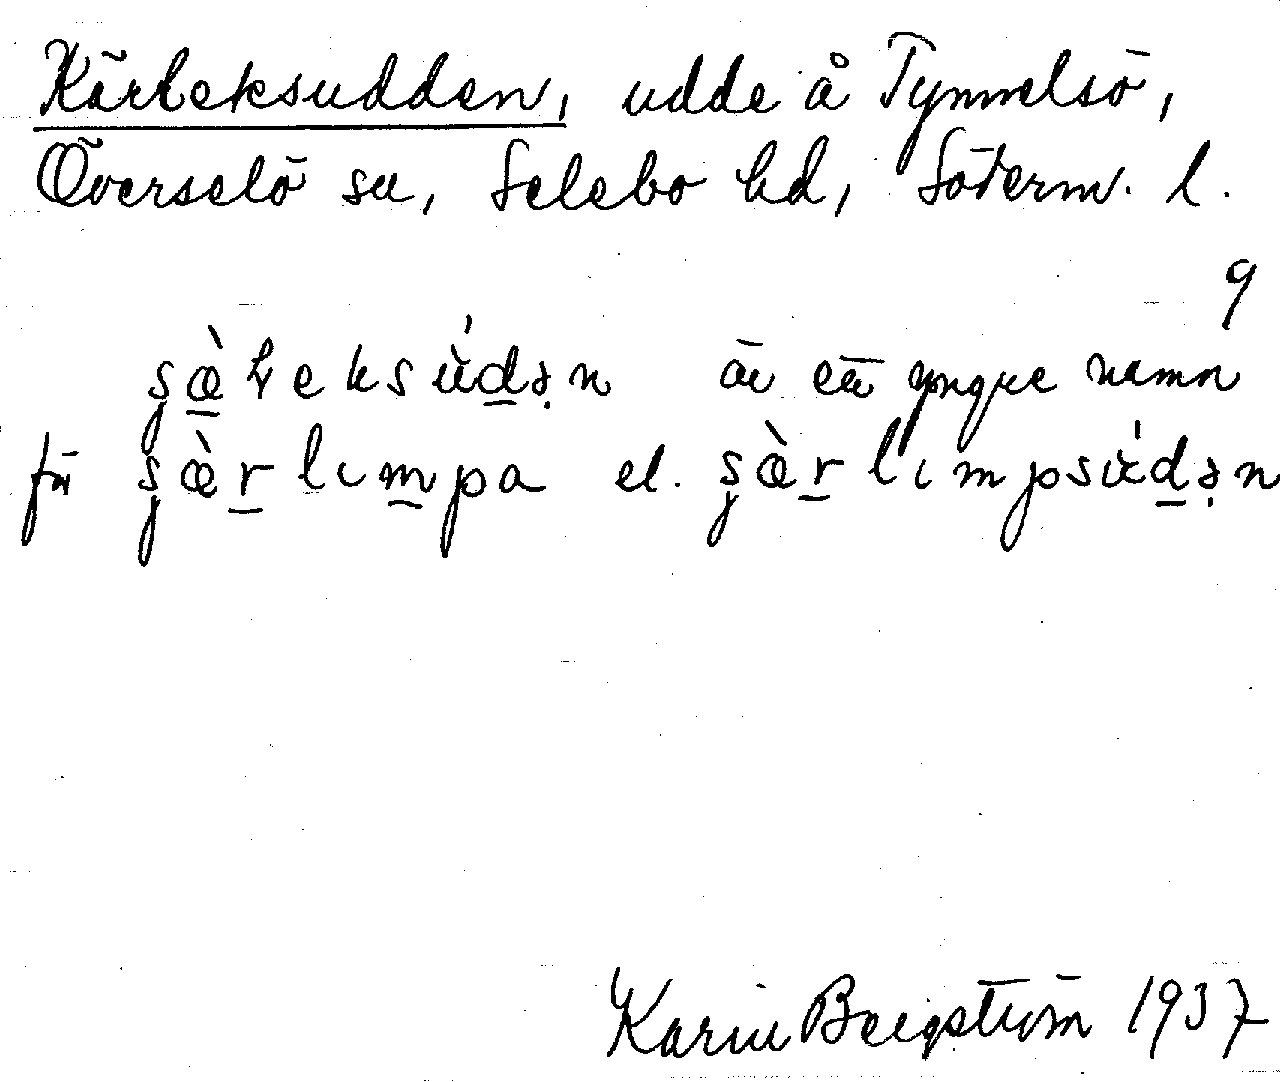 Kärleksudden, udde å Tynnelsö,
Överselö sn, Selebo hd, Söderm. l.
9
ʂæ̀ɽeksúdən är ett yngre namn
för ʂæ̀rlımpa el. ʂæ̀rlımpsúdən
Karin Bergström 1937